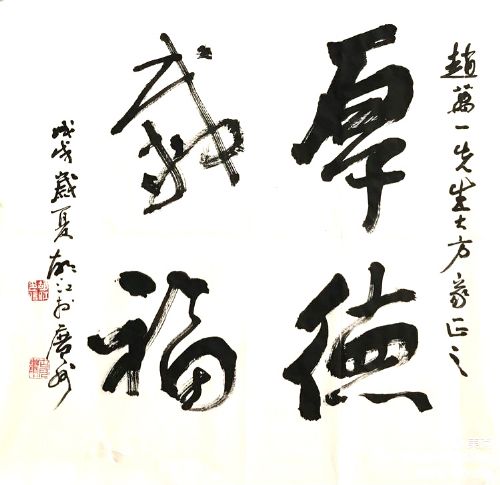 趙萬一先生大方家正之
厚德
載福
戊戌歲夏胡江於廣州